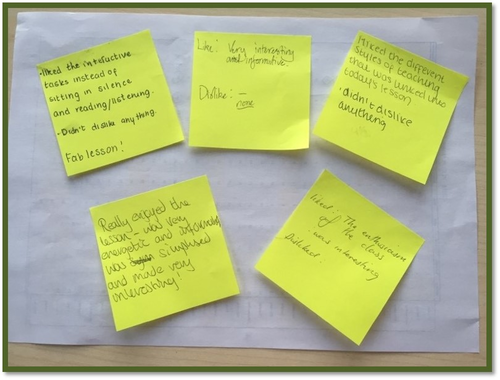 · liked the interactive
tasks instead of
sitting in silence
and reading/listening.
· Didn't dislike anything.
Fab lesson!
Like: Very interesting
and informative
Dislike: —
none
I liked the different
styles of teaching
that was linked into
today's lesson
· didn't dislike
anything
Really enjoyed the
lesson - was very
energetic and informative,
was simplified
and made very
interesting!
Liked: The enthusiasm
of the class
and interesting
Disliked: